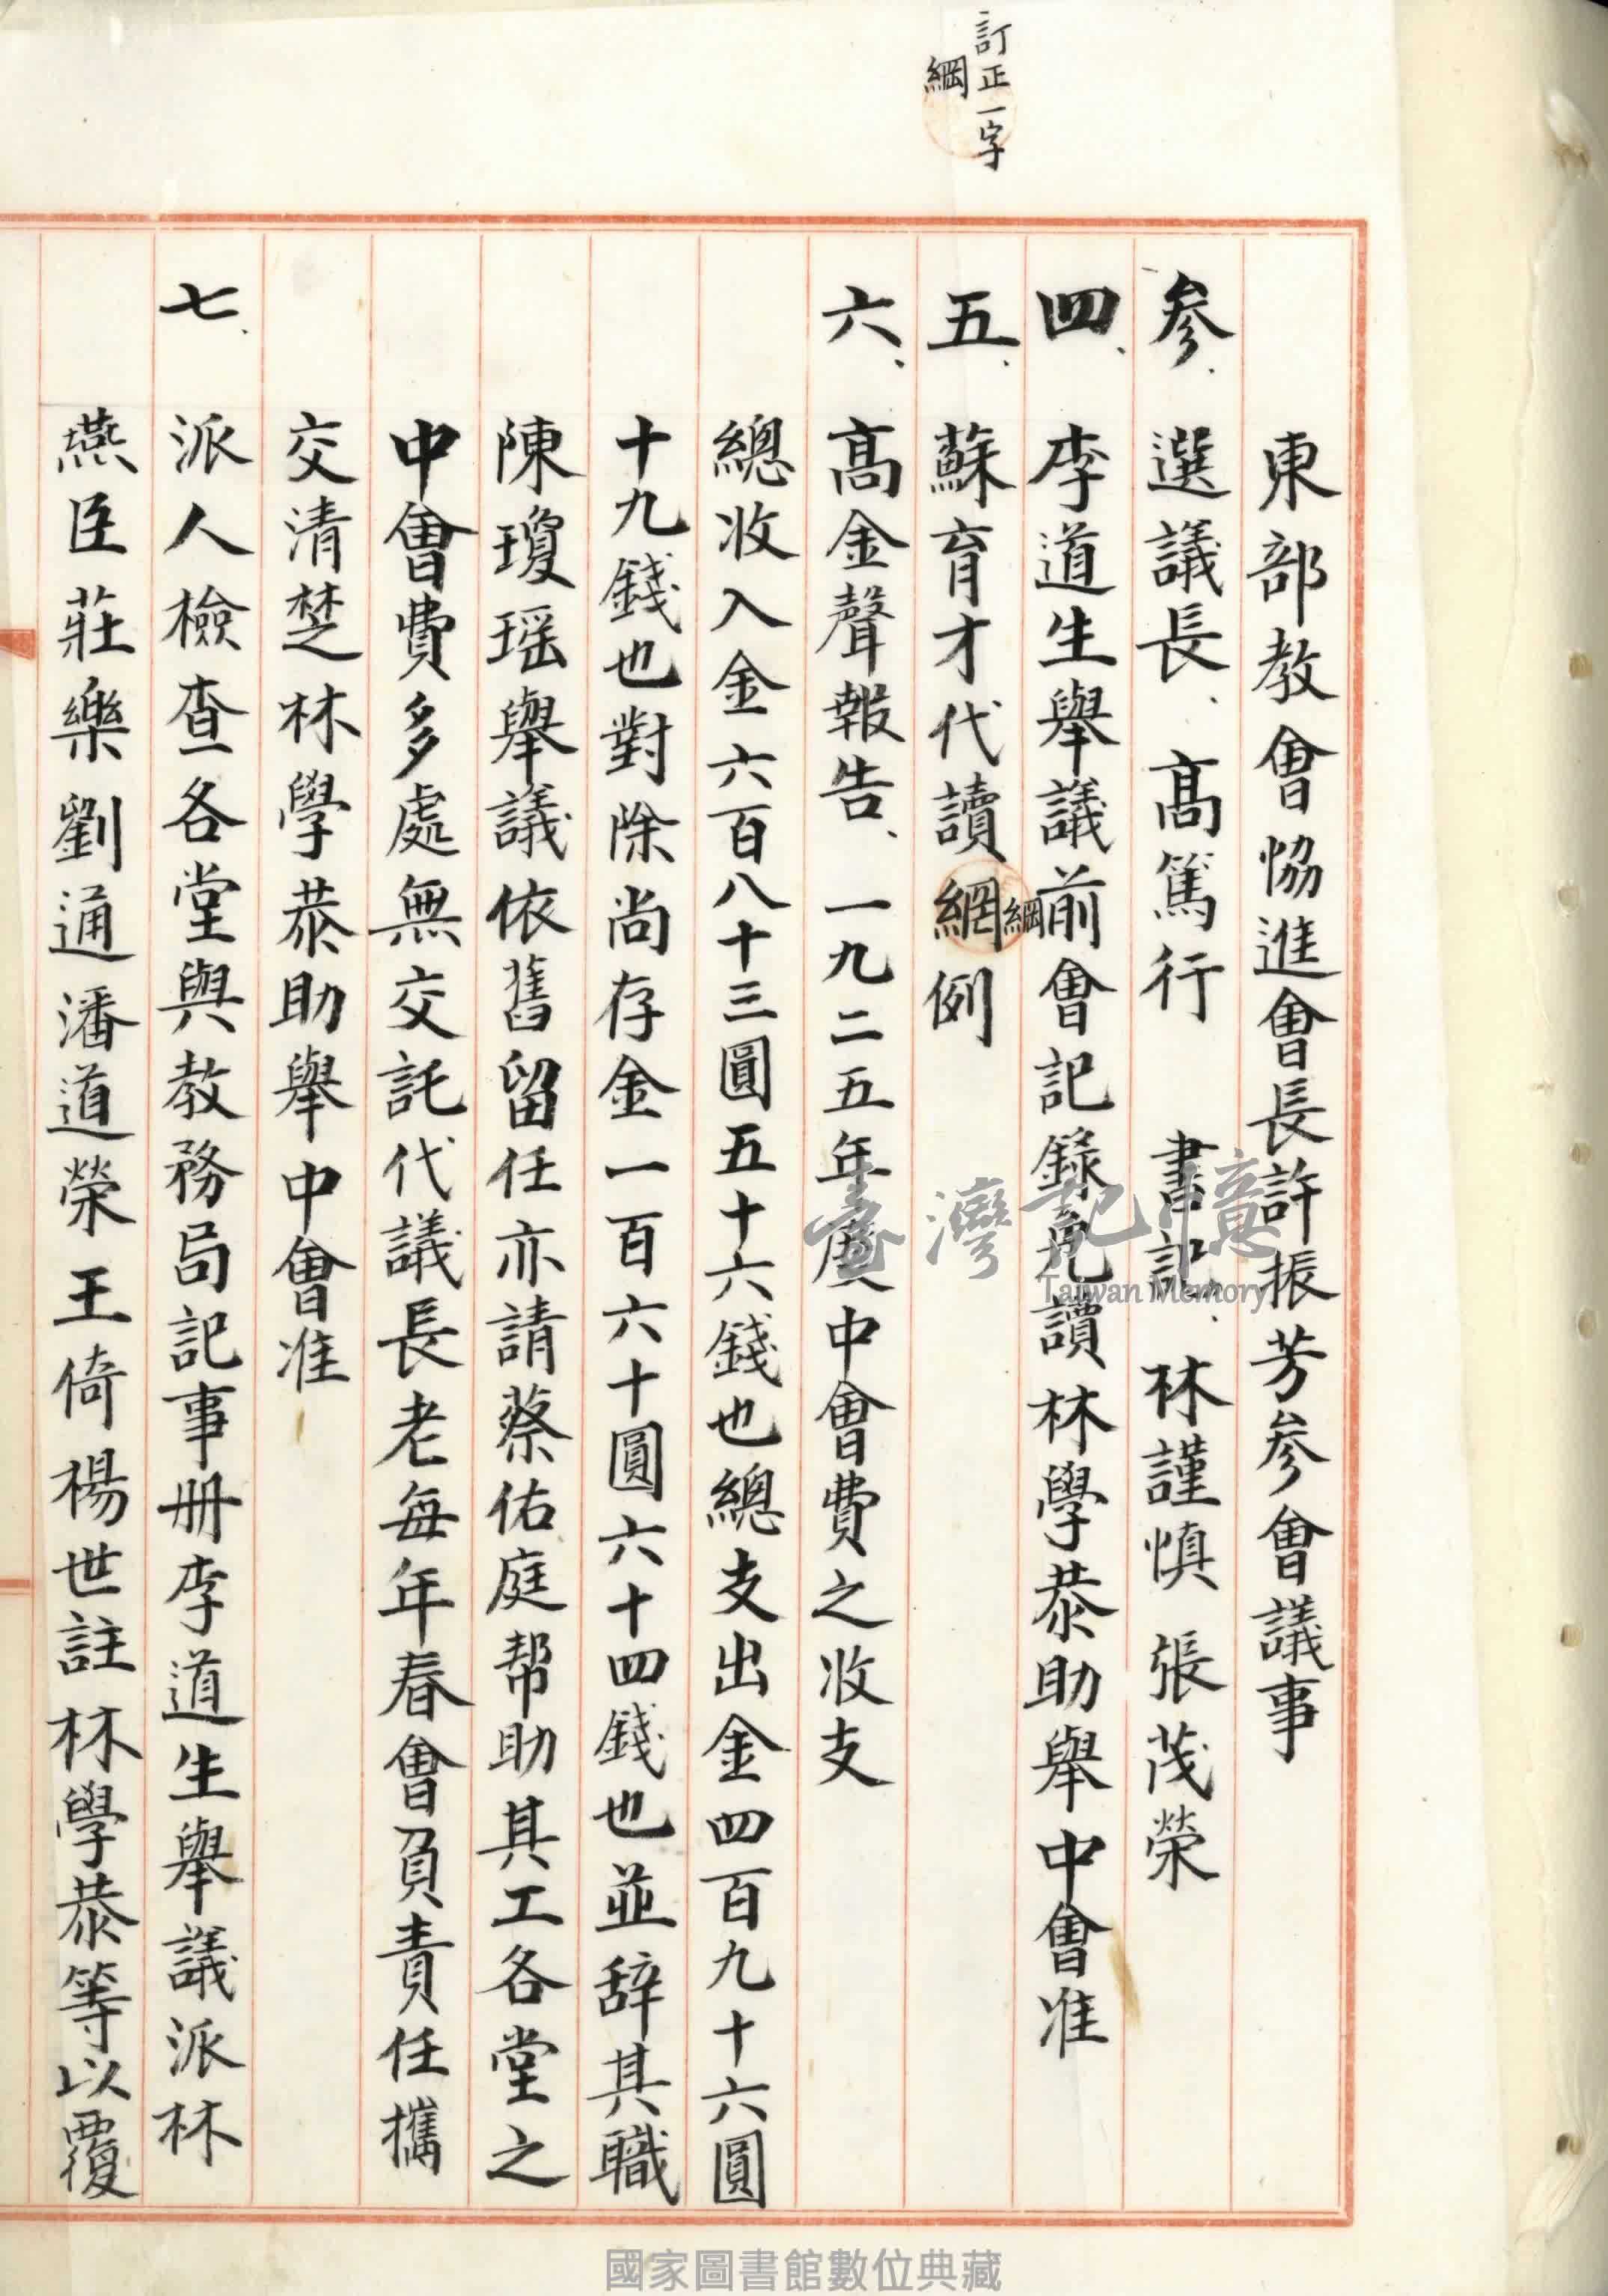 訂正一字
綱
東部教會協進會長許振芳参會議事
参、選議長、高篤行 書記、林謹慎 張茂榮
四、李道生舉議前會記錄免讀林學恭助舉中會准
五、蘇育才代讀網例
綱
六、高金聲報告、一九二五年度中會費之收支
總收入金六百八十三圓五十六錢也總支出金四百九十六圓
十九錢也對除尚存金一百六十圓六十四錢也並辞其職
陳瓊瑶舉議依舊留任亦請蔡佑庭帮助其工各堂之
中會費多處無交託代議長老每年春會負責任攜
交清楚林學恭助舉中會准
七、派人檢查各堂與教務局記事册李道生舉議派林
燕臣莊樂劉通潘道榮王倚楊世註林學恭等以覆
臺灣記憶
Taiwan Memory
國家圖書館數位典藏